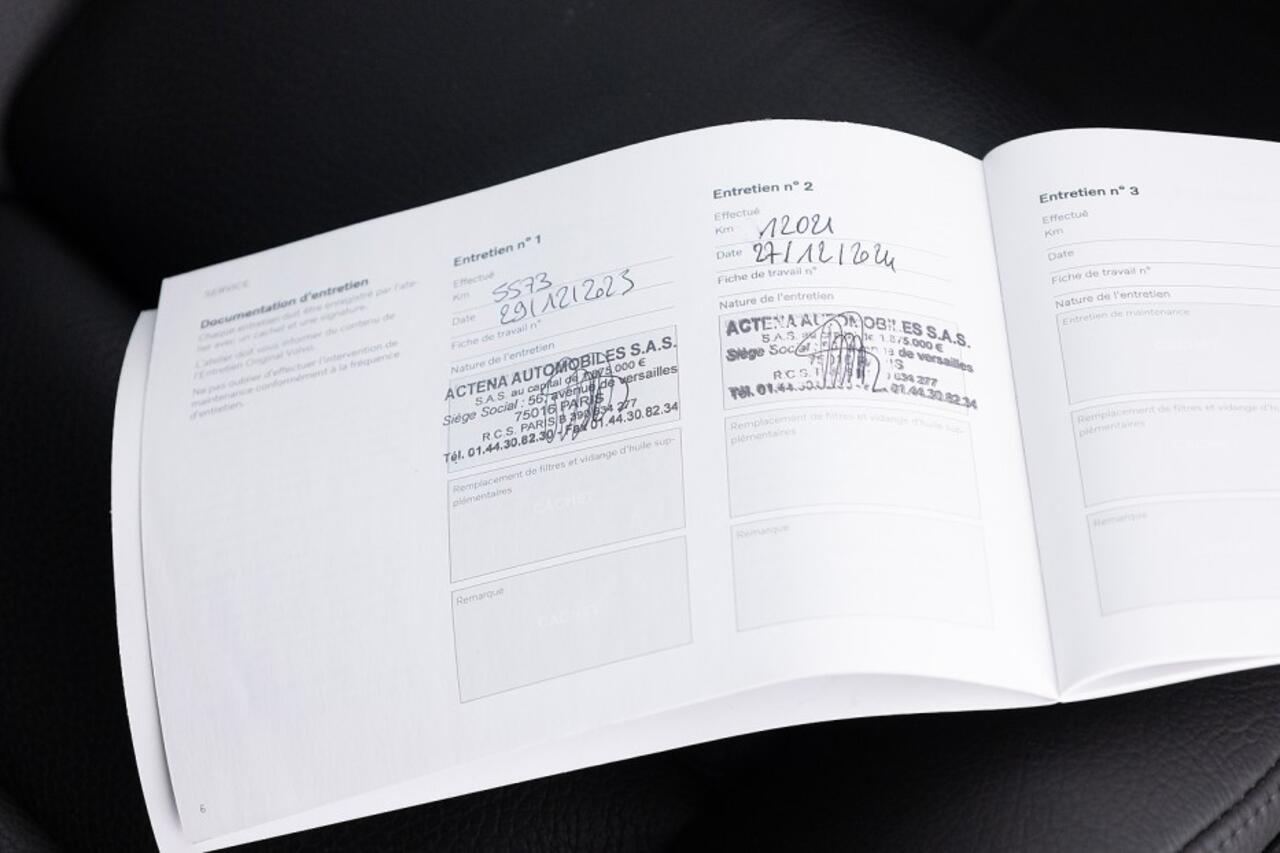 SERVICE
Documentation d'entretien
Chaque entretien doit être enregistré par l'ate-
lier avec un cachet et une signature.
L'atelier doit vous informer du contenu de
l'Entretien Original Volvo.
Ne pas oublier d'effectuer l'intervention de
maintenance conformément à la fréquence
d'entretien.
6
Entretien n° 1
Effectué
Km 5573
Date 29/12/2023
Fiche de travail n°
Nature de l'entretien
ACTENA AUTOMOBILES S.A.S.
S.A.S. au capital de 1.875.000 €
Siège Social : 56, avenue de versailles
75016 PARIS
R.C.S. PARIS B 634 277
Tél. 01.44.30.82.30 - Fax 01.44.30.82.34
Remplacement de filtres et vidange d'huile sup-
plémentaires
CACHET
Remarque
CACHET
Entretien n° 2
Effectué
Km 12021
Date 27/12/2024
Fiche de travail n°
Nature de l'entretien
ACTENA AUTOMOBILES S.A.S.
S.A.S. au de 1.875.000 €
Siège Social de versailles
R.C.S. 634 277
Tél. 01.44.30 01.44.30.82.34
Remplacement de filtres et vidange d'huile sup-
plémentaires
Remarque
Entretien n° 3
Effectué
Km
Date
Fiche de travail n°
Nature de l'entretien
Entretien de maintenance
CACHET
Remplacement de filtres et vidange d'hu
plémentaires
Remarque